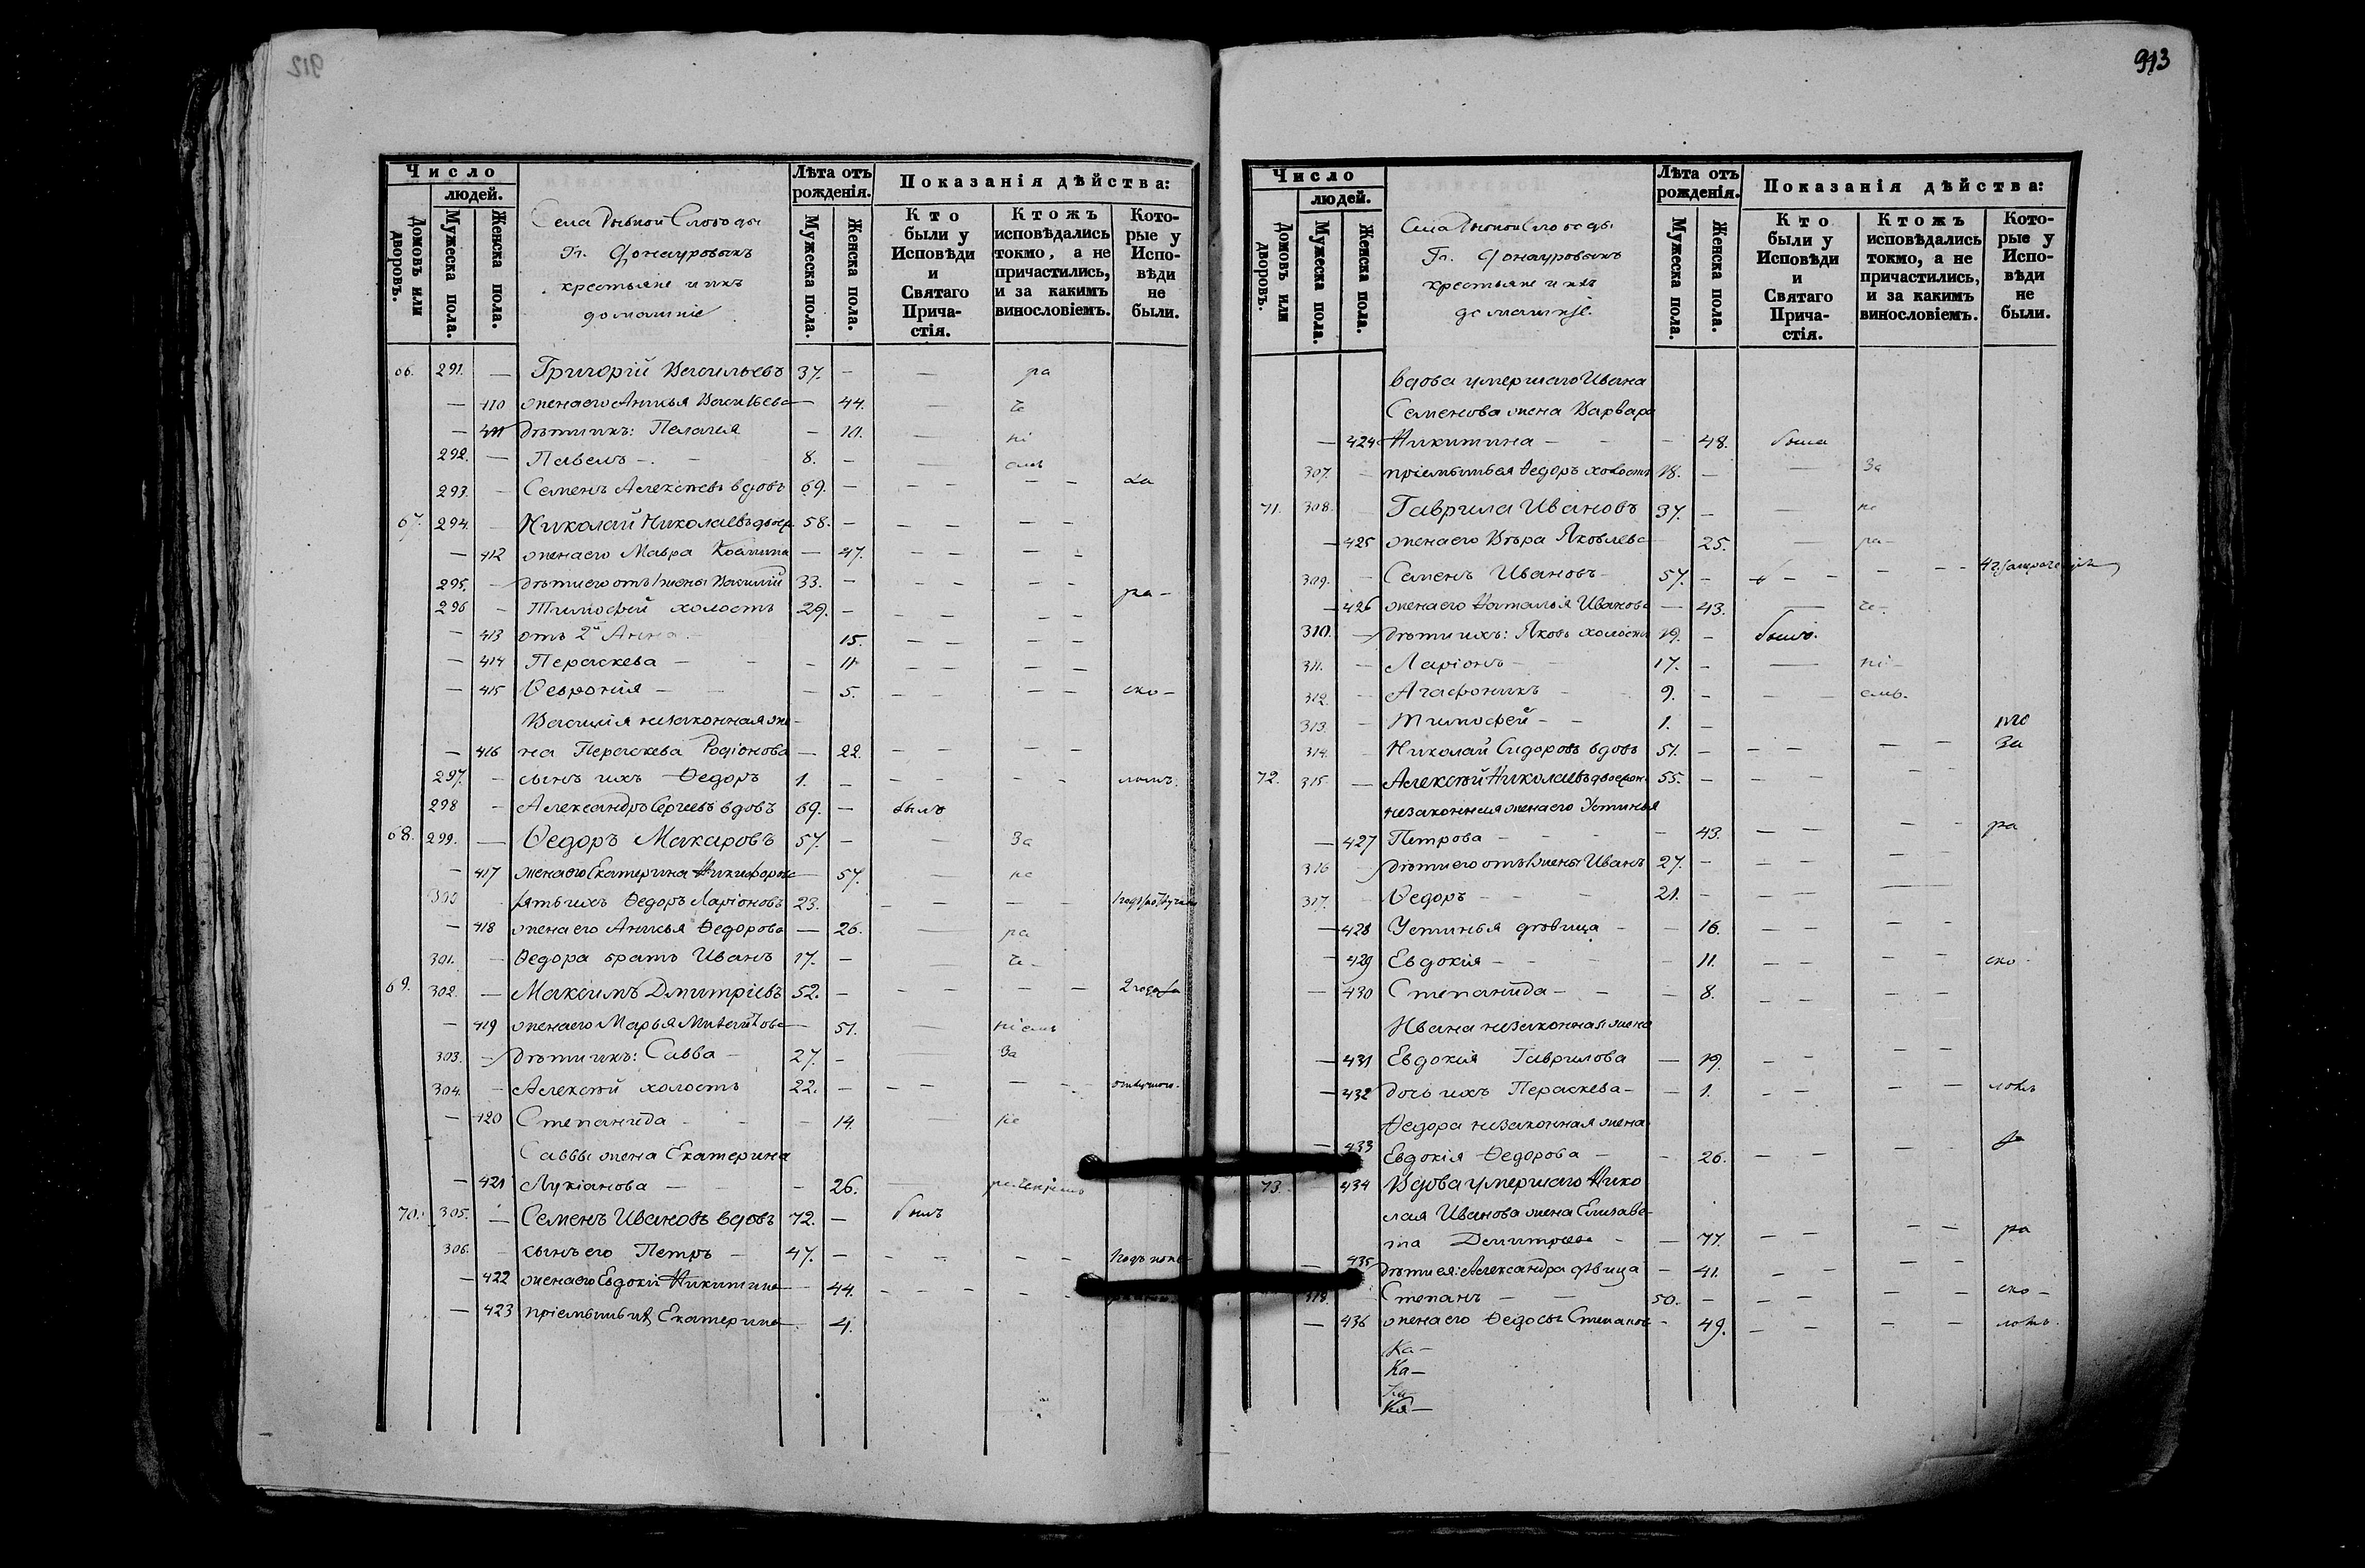 912
Число
людей.
Домовъ или дворовъ.
Мужеска пола.
Женска пола.
Села Рыбной Слободы
Гг. Фонауровыхъ
крестьяне и ихъ
домашніе
Лѣта отъ рожденія.
Мужеска пола.
Женска пола.
Показанія дѣйства:
Кто были у Исповѣди и Святаго Причастія.
Ктожъ исповѣдались токмо, а не причастились, и за какимъ винословіемъ.
Которые у Исповѣди не были.
66. 291. — Григорій Васильевъ 37. — — ра
— 410 жена его Анисья Васильева — 44. — че
— 411 дѣти ихъ: Пелагея — 10. — ні
292. — Павелъ — 8. — — емъ
293. — Семенъ Алексѣевъ вдовъ 69. — — — — — за
67. 294. — Николай Николаевъ двоер. 58. — — — — —
— 412 жена его Мавра Козмина — 47. — — — —
295. — дѣти его отъ 1 жены Василій 33. — — — — —
296 — Тимофей холостъ 29. — — — — — ра —
— 413 отъ 2й Анна — 15. — — — —
— 414 Параскева — — — 11. — — — —
— 415 Ѳевронія — — — 5. — — — — ско —
Василія незаконная же-
— 416 на Параскева Родіонова — 22. — — — —
297. — сынъ ихъ Ѳедоръ 1. — — — — — ломъ.
298 — Александръ Сергеевъ вдовъ 69. — былъ
68. 299. — Ѳедоръ Макаровъ 57. — — За
— 417 жена его Екатерина Никифорова — 57. — не
300 зять ихъ Ѳедоръ Ларіоновъ 23. — — — —
— 418 жена его Анисья Ѳедорова — 26. — ра
301. — Ѳедора братъ Иванъ 17. — — че —
69. 302. — Максимъ Дмитріевъ 52. — — — — — 2 года за
— 419 жена его Марья — 51. — ніемъ
303. — дѣти ихъ: Савва — 27. — — За
304. — Алексѣй холостъ 22. — — — — —
— 420 Степанида — — — 14. — не
Саввы жена Екатерина
— 421 Лукіанова — — — 26. —
70. 305. — Семенъ Ивановъ вдовъ 72. — былъ
306. — сынъ его Петръ — 47. — — — — —
— 422 жена его Евдокія Никитина — 44. — — — — —
— 423 пріемышъ ихъ Екатерина — 4.
913
Число
людей.
Домовъ или дворовъ.
Мужеска пола.
Женска пола.
Села Рыбной Слободы
Гг. Фонауровыхъ
крестьяне и ихъ
домашніе.
Лѣта отъ рожденія.
Мужеска пола.
Женска пола.
Показанія дѣйства:
Кто были у Исповѣди и Святаго Причастія.
Ктожъ исповѣдались токмо, а не причастились, и за какимъ винословіемъ.
Которые у Исповѣди не были.
вдова умершаго Ивана
Семенова жена Варвара
— 424 Никитина — — — 48. была
307. — пріемышъ ея Ѳедоръ холостъ 18. — — За
71. 308. — Гаврила Ивановъ 37. — — не
— 425 жена его Вѣра Яковлева 25. — ра —
309. — Семенъ Ивановъ 57. — — — — —
— 426 жена его Наталья Иванова — 43. — че —
310. — дѣти ихъ: Яковъ холостъ 19. — былъ.
311. — Ларіонъ — 17. — — ні —
312. — Агафоникъ — 9. — — емъ.
313. — Тимофей — — 1. —
314. — Николай Сидоровъ вдовъ 51. — — — — — За
72. 315. — Алексѣй Николаевъ двоежон. 55. — — — — —
незаконная жена его Устинья
— 427 Петрова — — — 43. — — — — ра
316 — дѣти его отъ 1 жены Иванъ 27. — — — — —
317. — Ѳедоръ — — 21. — — — —
— 428 Устинья дѣвица — — 16. — — — —
— 429 Евдокія — — — 11. — — — — ско —
— 430 Степанида — — — 8. — — — —
Ивана незаконная жена
— 431 Евдокія Гаврилова — 19. — — — —
— 432 дочь ихъ Параскева — — 1. — — — — ломъ
Ѳедора незаконная жена
— 433 Евдокія Ѳедорова — — 26. — — — — за
73. 434 Вдова умершаго Нико
лая Иванова жена Елизаве-
та Димитріева — — 77. — — — — ра
— 435 дѣти ея: Александра дѣвица — 41. — — — —
318. Степанъ — — 50. — — — — — ско —
— 436 жена его Ѳедосья Степанова — 49. — — — — ломъ.
Ка —
Ка —
Ка —
Ка —